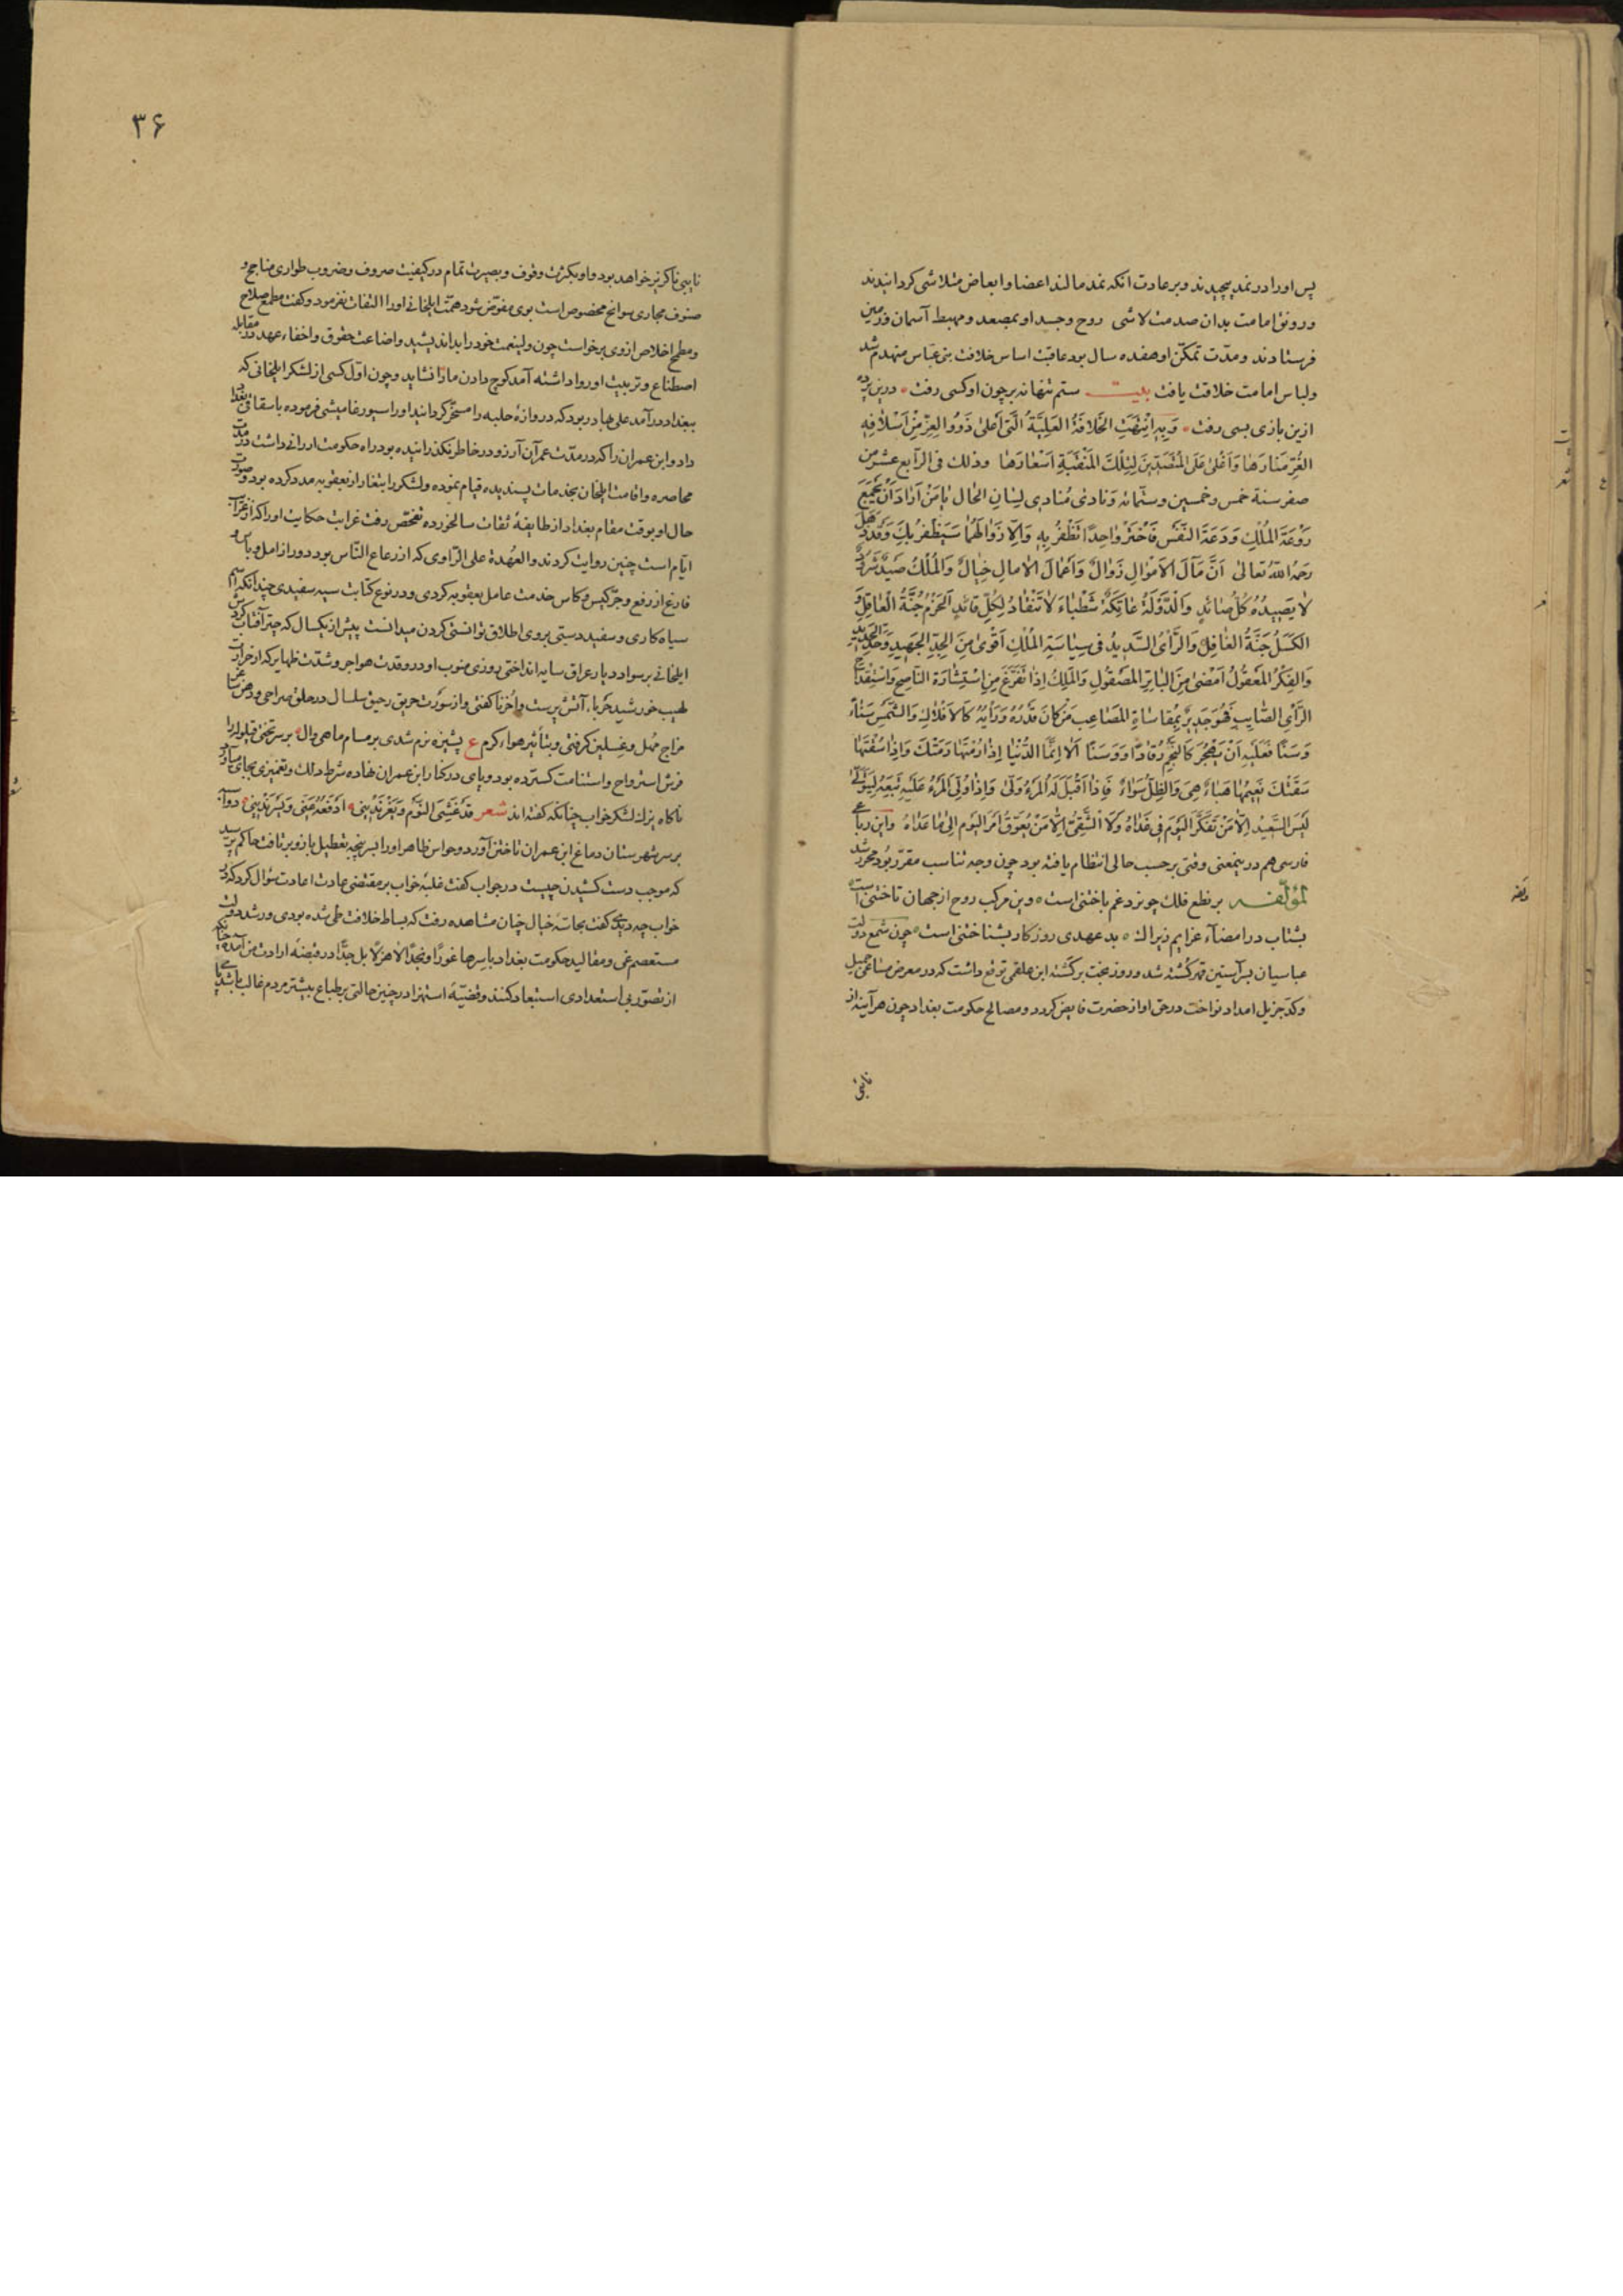 پس اورا در نمد پیچیدند و بر عادت انکه نمد مالند اعضا و ابعاض متلاشی کردانیدند
و رونق امامت بدان صدمت لاشی روح و جسد او بمصعد و مهبط آسمان و زمین
فرستادند و مدّت تمکّن او هفده سال بود عاقبت اساس خلافت بنی عبّاس منهدم شد
ولباس امامت خلاقت یافت بیت ستم تنها نه بر چون او کسی رفت درین پرده
ازین بازی بسی رفت وَبِهِ انْتَهَتِ الخَلافَةُ العَلِیَّةُ الَّتی اَعْلیٰ ذَوُو العِزِّ مِنْ اَسْلافِهِ
الغُرِّ مَنارَها وَاَغْلیٰ عَلَی المُتَغَلِّبینَ لِتِلْكَ المَنْقَبَةِ اَسْعارَها وذلك فی الرّابع عشر من
صفر سنة خمس و خمسین و ستّمائه وَنادیٰ مُنادی لِسٰانِ الحٰالِ یٰا مَنْ اَرٰادَ اَنْ یَجْمَعَ
رَوْعَةَ المُلْكِ وَدَعَةَ النَّفْسِ فَاخْتَرْ وٰاحِدًا تَظْفَرُ بِهِ وَاِلّا زَوٰالُهُمٰا سَیَظْفَرُ بِكَ وَقَدْ قیلَ
رَحِمَهُ اللّٰهُ تعالیٰ اَنَّ مَآلَ الاَمْوٰالِ زَوٰالٌ وَاَعْمٰالَ الاٰمالِ خَیٰالٌ وَالمُلْكُ صَیْدٌ شَرُودٌ
لاٰ یَصیدُهُ کُلُّ صٰائدٍ وَالدَّوْلَةُ عٰاتِکَةٌ شَطْبٰاءُ لاٰ تَنْقٰادُ لِکُلِّ قٰائدٍ اَلحَزْمُ جُنَّةُ الْعٰاقِلِ وَ
الکَسَلُ جَنَّةُ الغٰافِلِ وَالرَّأیُ السَّدیدُ فی سِیٰاسَةِ المُلْكِ اَقْویٰ مِنَ الجِدِّ الجَهیدِ وَحَدِّ الحَدیدِ
وَالفِکْرُ المَعْقُولُ اَمْضیٰ مِنَ البٰاتِرِ المَصْقُولِ وَالمَلِكُ اِذٰا تَفَرَّغَ مِنِ اسْتِشٰارَةِ النّٰاصِحِ وَاسْتِقْدٰاحِ
الرَّأیِ الصّٰایِبِ فَهُوَ جَدیرٌ بِمُقٰاسٰاةِ المَصٰاعِبِ مَنْ کٰانَ قَدْرُهُ وَرَأیُهُ کَالاَفْلاٰكِ وَالشَّمْسِ سَنٰاءً
وَسَنًا فَعَلَیْهِ اَنْ یَهْجُرَ کَالنَّجْمِ رُقٰادًا وَوَسَنًا اَلاٰ اِنَّمَا الدُّنْیٰا اِذٰا رُمْتَهٰا رَمَتْكَ وَاِذٰا سُقْتَهٰا
سَقَتْكَ نَعیمُهٰا هَبٰاءٌ هِیَ وَالظِّلُّ سَوٰاءٌ فَاِذٰا اَقْبَلَ لَهُ المَرْءُ وَلّیٰ وَاِذٰا وَلّیَ المَرْءُ عَلَیْهِ تَبِعَهُ لِیَتَوَلّٰی
لَیْسَ السَّعیدُ اِلاّٰ مَنْ تَفَکَّرَ الیَوْمَ فی غَدٰاهُ وَلاَ الشَّقِیُّ اِلاّٰ مَنْ یُعَوِّقُ اَمْرَ الیَوْمِ اِلیٰ مٰا عَدٰاهُ واین رباعی
فارسی هم درینمعنی وقتی بر حسب حالی انتظام یافته بود چون وجه تناسب مقرّر بُود محرّر شد
لمؤلّفه بر نطع فلك چو نرد غم باختنی است وین مرکب روح از جهان تاختنی است
بشتاب در امضآء عزایم زیراك بد عهدی روزکار بشناختنی است چون شمع دولت
عباسیان بآستین قهر کُشته شد و روز بخت برکشته ابن علقمی توقع داشت که در معرض مساعی جمیل
وکدّ جزیل امداد نواخت در حق او از حضرت فایض کردد و مصالح حکومت بغداد چون هر آینه از
نایبی
۳۶
نایبی ناکزیر خواهد بود و او بکثرت وقوف و بصیرت تمام در کیفیت صروف و ضروب طواری مناجح و
صنوف مجاری سوانح مخصوص است بوی مفوّض شود همّت ایلخانی اورا التفات نفرمود و کفت مطمع صلاح
و مطمح اخلاص از وی برخواست چون ولینعمت خود را بد اندیشید و اضاعت حقوق و اخفاء عهد در مقابله
اصطناع و تربیت او روا داشته آمد کوچ دادن ما را نشاید و چون اوّل کسی از لشکر ایلخانی که
ببغداد درآمد علی بهادر بود که دروازهٔ حلبه را مسخّر کردانید اورا سیورغامیشی فرموده باسقاقی بغداد
داد و ابن عمران را که در مدّت عمر آن آرزو در خاطر نکذرانیده بود راه حکومت ارزانی داشت در مدّت
محاصره و اقامت ایلخان بخدمات پسندیده قیام نموده و لشکر را بتغار از بعقوبه مدد کرده بود و صورت
حال او بوقت مقام بغداد از طایفهٔ ثقات سالخورده تفحّص رفت غرابت حکایت اورا که از غرآئب
ایّام است چنین روایت کردند والعُهدة علی الرّاوی که از رعاع النّاس بود دور از امل و یأس و
فارغ از رفع و جرّ کیس و کاس خدمت عامل بعقوبه کردی و در نوع کتابت سیه سفیدی چندانکه اسم
سیاه کاری و سفید دستی بر وی اطلاق توانستی کردن میدانست پیش از یکسال که چتر آفتاب کردش
ایلخانی بر سواد دیار عراق سایه انداختی روزی منوب او در وقدت هواجر و شدّت ظهایر که از حرارت
لهیب خورشید حَرباء آتش پرست وا حُزنا کفتی و از سورت حریق رحیق سلسال در حلق صراحی و دهن کاس
مزاج مُهل و غِسلین کرفتی و بتأثیر هواء کرم ع پشیزه نرم شدی بر مسام ماهی وال بر سر تختی قیلوله را
فرش استرواح و استنامت کسترده بود و پای در کنار ابن عمران نهاده شرط دلك و تغمیزی بجای می‌آورد
ناکاه یزك لشکر خواب چنانکه کفته‌اند شعر قَدْ غَشِیَ النَّوْمُ وَیَغْرَنْدینی اَدْفَعُهُ عَنّی وَیَسْرَنْدینی دوآب
بر سر شهرستان دماغ ابن عمران تاختن آورد و حواس ظاهر اورا بسر پنجه تعطیل بازو برتافت حاکم پرسید
که موجب دست کشیدن چیست در جواب کفت غلبهٔ خواب بر مقتضی عادت اعادت سؤال کرد که در
خواب چه دیدی کفت بحاسّهٔ خیال چنان مشاهده رفت که بساط خلافت طی شده بودی و رشد دولت
مستعصم غی و مقالید حکومت بغداد باسِرها غورًا و نجدًا لا هزلاً بل جدًّا در قبضهٔ ارادت من آمده چنانکه
از تصوّر بی استعدادی استبعاد کنند و قضیّهٔ استهزا در چنین حالتی بر طباع بیشتر مردم غالب باشد پای